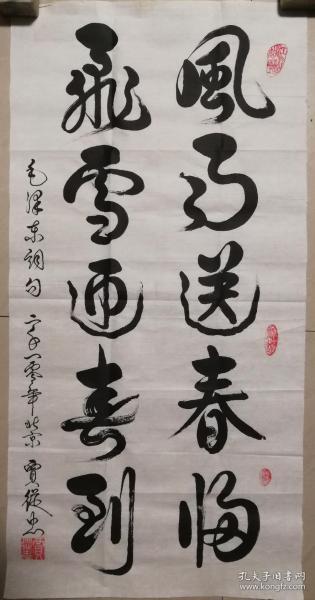 風雨送春归
飛雪迎春到
毛泽东词句 二〇一〇年北京 贾從忠
孔夫子旧书网
www.kongfz.com